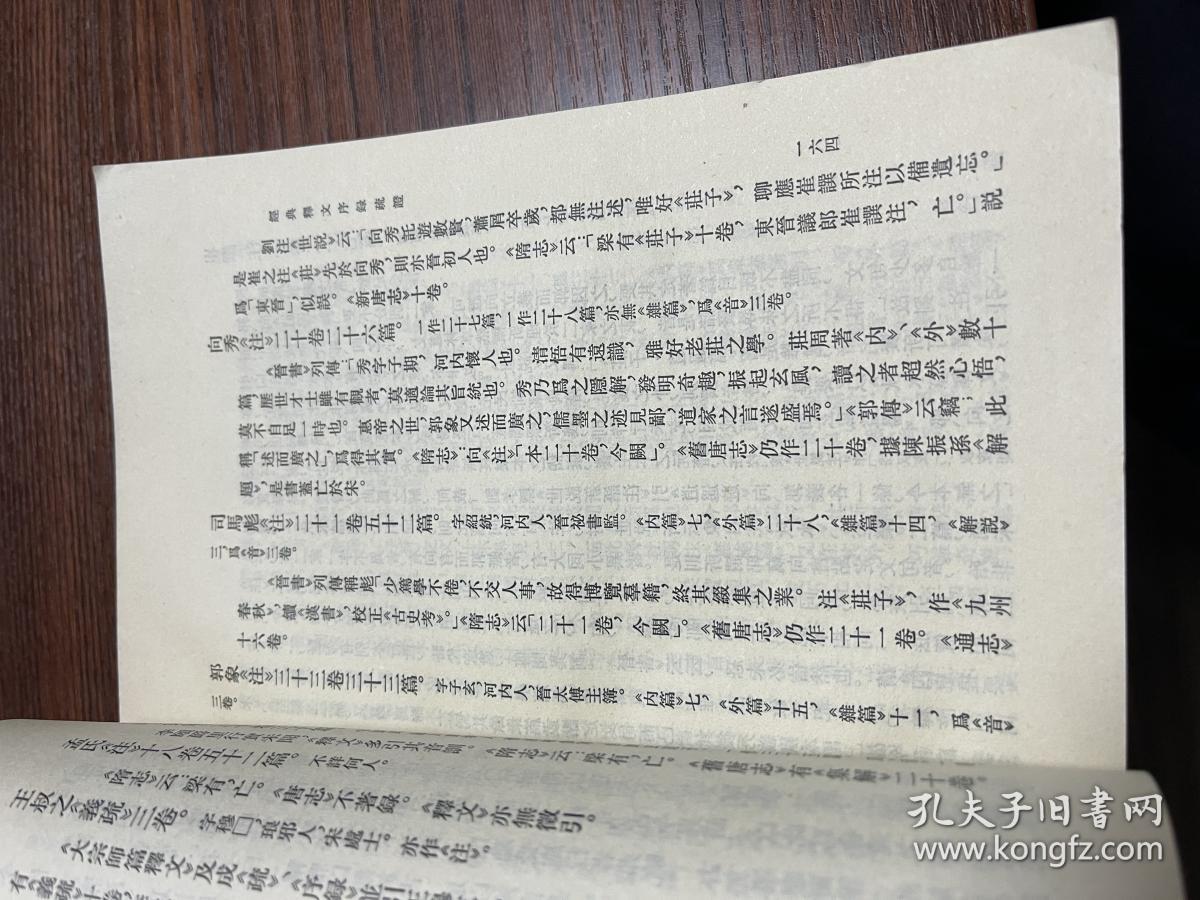 經典釋文序録疏證
一六四
劉注《世説》云:「向秀託遊數賢,蕭屑卒歲,都無注述,唯好《莊子》,聊應崔譔所注以備遺忘。」
是崔之注《莊》先於向秀,則亦晉初人也。《隋志》云:「梁有《莊子》十卷,東晉議郎崔譔注,亡。」説
爲「東晉」,似誤。《新唐志》十卷。
向秀《注》二十卷二十六篇。一作二十七篇,一作二十八篇,亦無《雜篇》,爲《音》三卷。
《晉書》列傳:「秀字子期,河内懷人也。清悟有遠識,雅好老莊之學。莊周著《内》、《外》數十
篇,歷世才士雖有觀者,莫適論其旨統也。秀乃爲之隱解,發明奇趣,振起玄風,讀之者超然心悟,
莫不自足一時也。惠帝之世,郭象又述而廣之,儒墨之迹見鄙,道家之言遂盛焉。」《郭傳》云竊,此
稱「述而廣之」,爲得其實。《隋志》:向《注》「本二十卷,今闕」。《舊唐志》仍作二十卷,據陳振孫《解
題》,是書蓋亡於宋。
司馬彪《注》二十一卷五十二篇。字紹統,河内人,晉祕書監。《内篇》七,《外篇》二十八,《雜篇》十四,《解説》
三,爲《音》三卷。
《晉書》列傳稱彪「少篤學不倦,不交人事,故得博覽羣籍,終其綴集之業。注《莊子》,作《九州
春秋》,續《漢書》,校正《古史考》。」《隋志》云「二十一卷,今闕」。《舊唐志》仍作二十一卷。《通志》
十六卷。
郭象《注》三十三卷三十三篇。字子玄,河内人,晉太傅主簿。《内篇》七,《外篇》十五,《雜篇》十一,爲《音》
三卷。
《隋志》云:梁有,亡。《舊唐志》有《集解》二十卷。
孟氏《注》十八卷五十二篇。不詳何人。
《隋志》云:梁有,亡。《唐志》不著録。《釋文》亦無徵引。
王叔之《義疏》三卷。字穆□,琅邪人,宋處士。亦作《注》。
《大宗師篇釋文》及成《疏》、《序録》並引
有《義疏》十卷,
孔夫子旧书网
www.kongfz.com